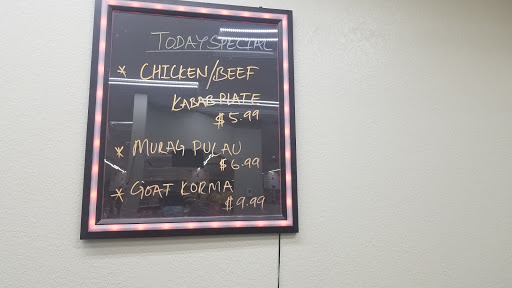 TODAY SPECIAL
* CHICKEN/BEEF
KABAB PLATE
$5.99
* MURAG PULAU
$6.99
* GOAT KORMA
$9.99